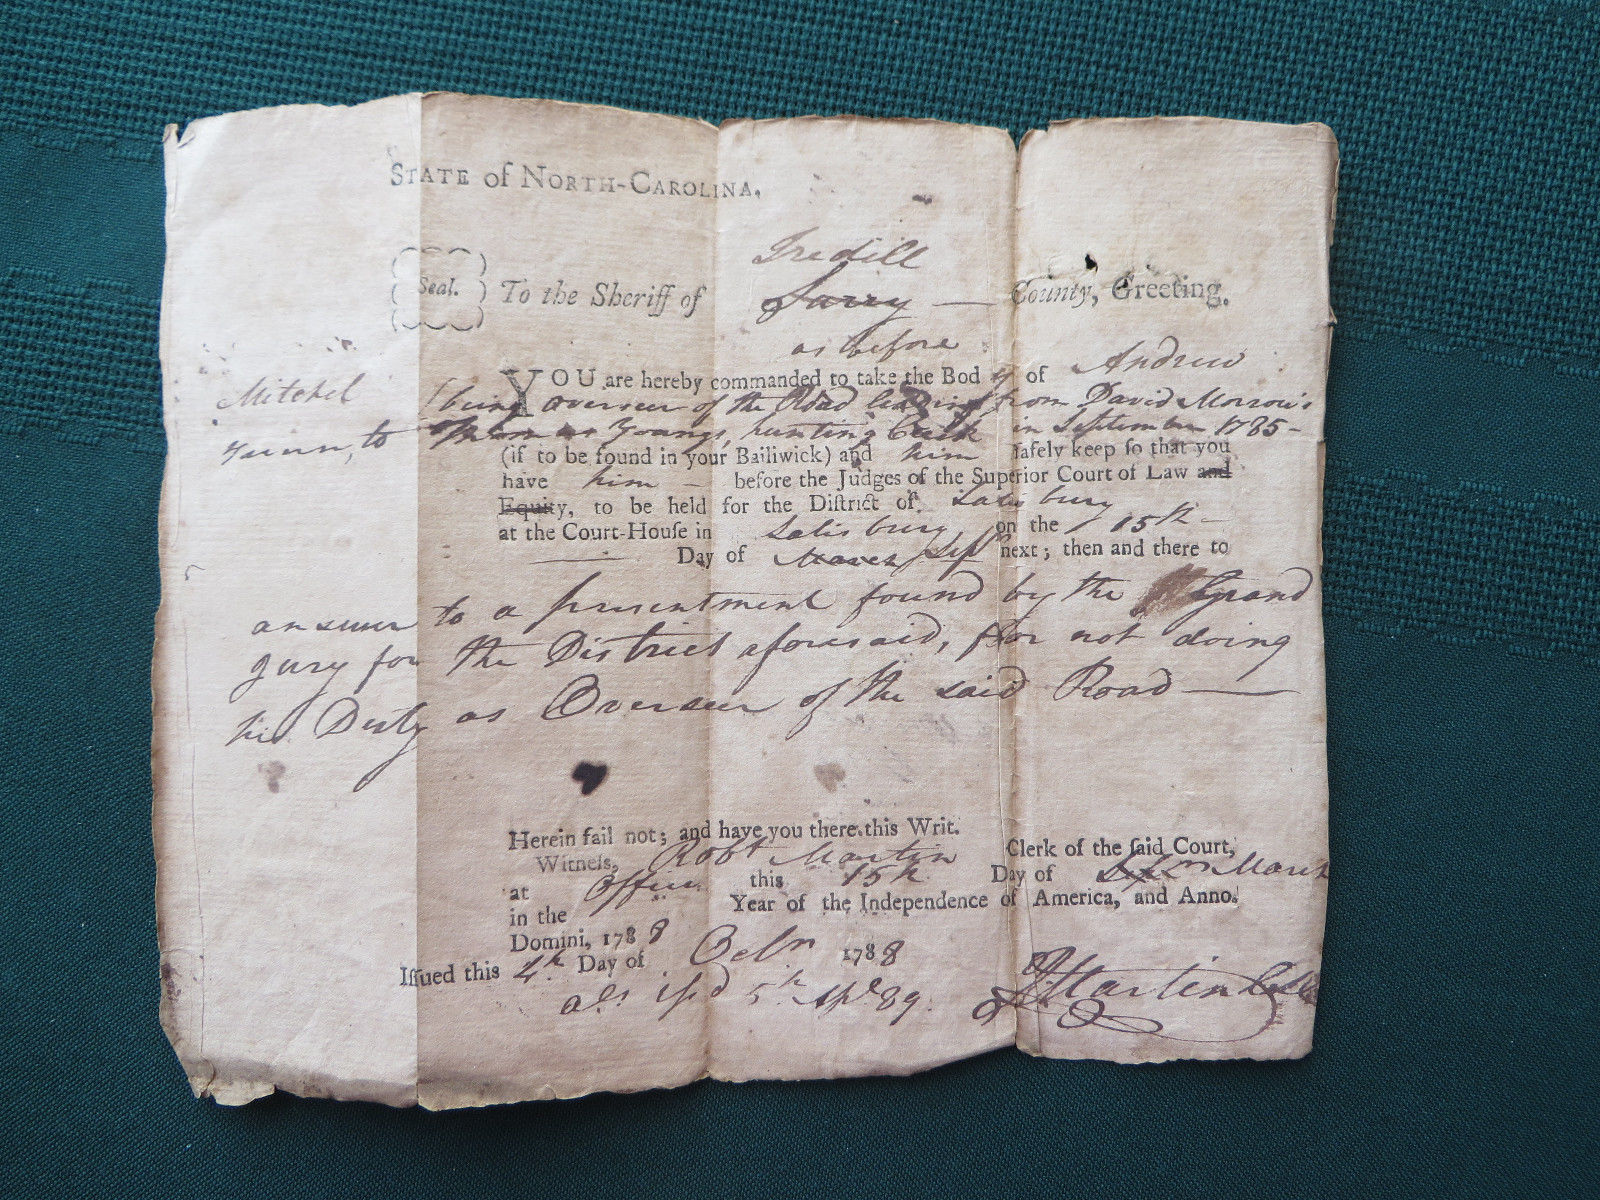 STATE of NORTH-CAROLINA.
Iredill
Seal. To the Sheriff of Surry — County, Greeting.
as before
YOU are hereby commanded to take the Body of Andrew
Mitchel (being overseer of the Road leading from David Morrow's
to Thomas Youngs, hunting Creek in September 1785 -
(if to be found in your Bailiwick) and him ſafely keep ſo that you
have him - before the Judges of the Superior Court of Law and
Equity, to be held for the Diſtrict of Salisbury
at the Court-Houſe in Salisbury on the 15th -
Day of March Sep next; then and there to
answer to a presentment found by the Grand
Jury for the District aforesaid, for not doing
his Duty as Overseer of the said Road —
Herein fail not; and have you there this Writ.
Witneſs, Robt Martin Clerk of the ſaid Court,
at Office this 15th Day of March
in the Year of the Independence of America, and Anno.
Domini, 1788
Iſſued this 4th Day of Octr 1788
als issd 5th Apl 89.
Martin